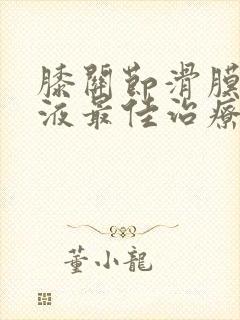 膝關節滑膜
液最佳治療
董小龍